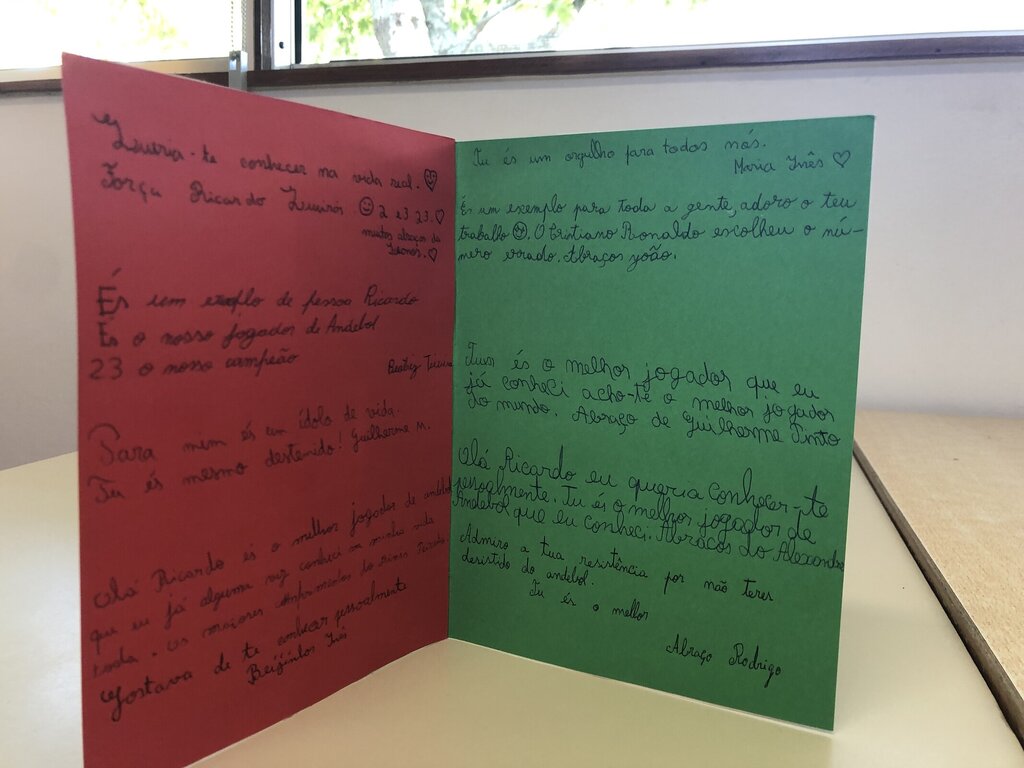 Queria-te conhecer na vida real.
Força Ricardo
2 e 3 23.
muitos abraços da
Leonor.
És um exemplo de pessoa Ricardo
És o nosso jogador de Andebol
23 o nosso campeão
Beatriz Teixeira
Para mim és um ídolo de vida.
Tu és mesmo destenido! Guilherme M.
Olá Ricardo és o melhor jogador de andebol
que eu já alguma vez conheci na minha vida
toda. os maiores
Gostava de te conhecer pessoalmente
Beijinhos Inês
Tu és um orgulho para todos nós.
Maria Inês
És um exemplo para toda a gente, adoro o teu
trabalho. O Cristiano Ronaldo escolheu o nú-
mero errado. Abraços João.
Tu és o melhor jogador que eu
já conheci acho-te o melhor jogador
do mundo. Abraço de Guilherme Pinto
Olá Ricardo eu queria conhecer-te
pessoalmente. Tu és o melhor jogador de
Andebol que eu conheci. Abraços do Alexandre
Admiro a tua resistência por não teres
desistido do andebol.
Tu és o melhor
Abraço Rodrigo